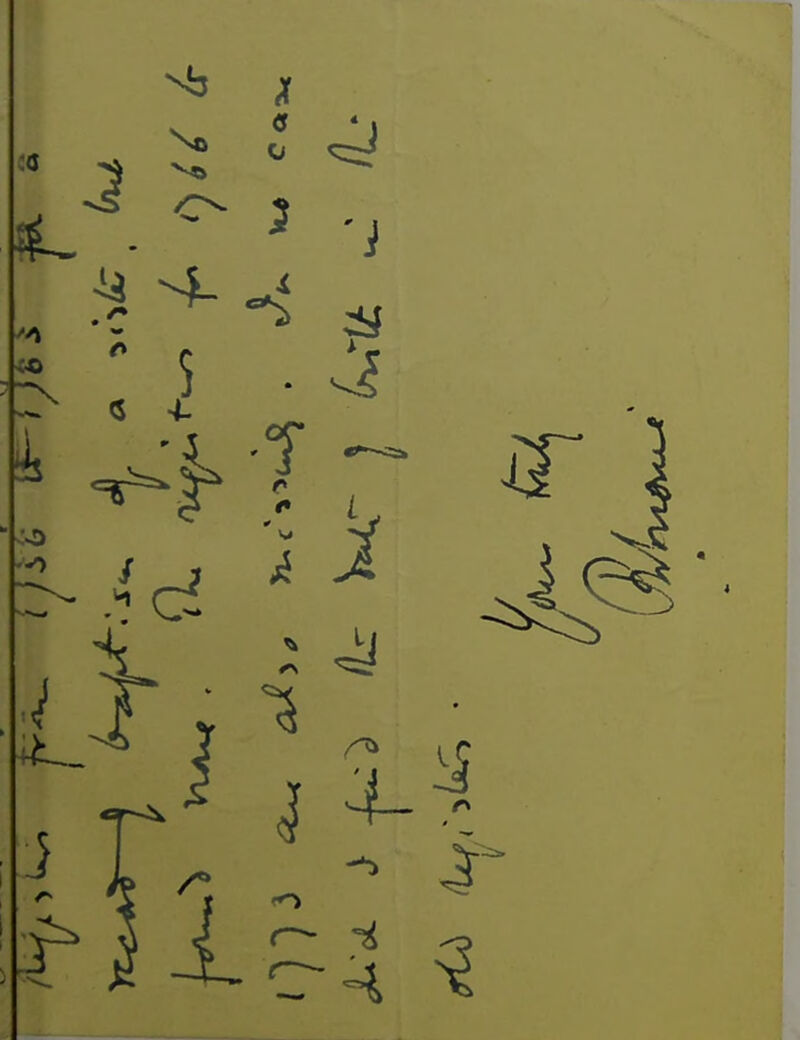 register from 1756 to 1765 for a
record of baptism of a sister, but
found none. The registers for 1766 to
1773 are also missing. In no case
did I find the date of birth in the
old register.
Yours truly